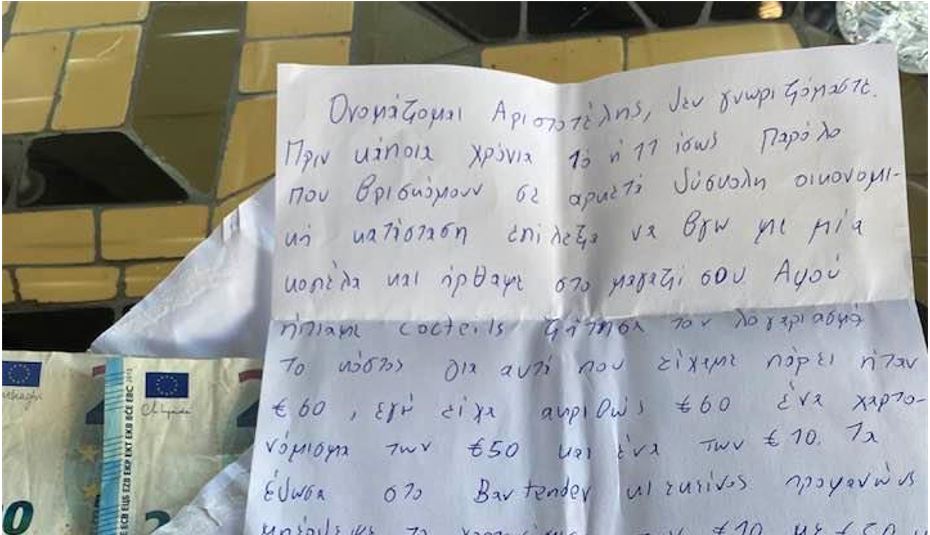 Ονομάζομαι Αριστοτέλης, δεν γνωριζόμαστε.
Πριν κάποια χρόνια 10 ή 11 ίσως παρόλο
που βρισκόμουν σε αρκετά δύσκολη οικονομι-
κή κατάσταση επέλεξα να βγω με μία
κοπέλα και ήρθαμε στο μαγαζί σου. Αφού
ήπιαμε cocteils ζήτησα τον λογαριασμό
το κόστος για αυτά που είχαμε πάρει ήταν
€60, εγώ είχα ακριβώς €60 ένα χαρτο-
νόμισμα των €50 και ένα των €10. Τα
έδωσα στο Bartender κι εκείνος προφανώς
μπέρδεψε το €10 με €50
ECB ЕЦБ EZB EKP EKT EKB BCE EBC 2015